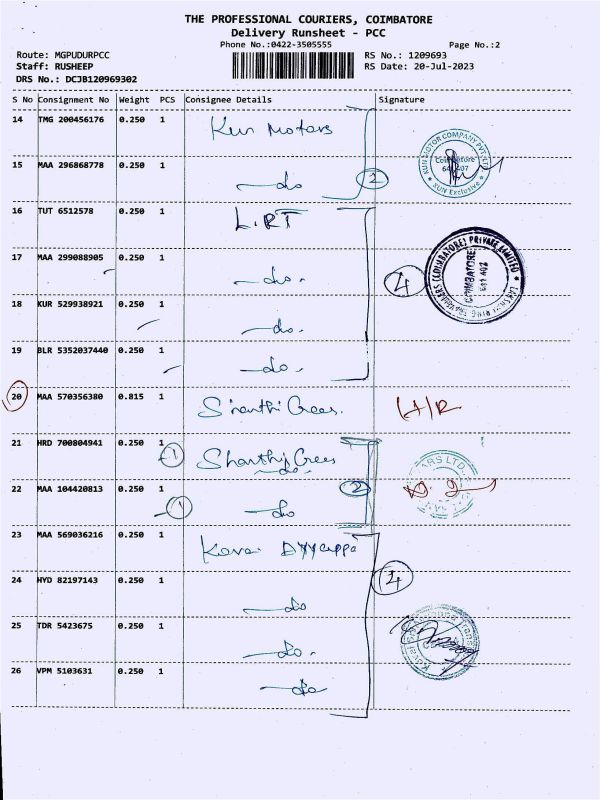 THE PROFESSIONAL COURIERS, COIMBATORE
Delivery Runsheet - PCC
Phone No.:0422-3505555
Page No.:2
Route: MGPUDURPCC
RS No.: 1209693
Staff: RUSHEEP
RS Date: 20-Jul-2023
DRS No.: DCJB120969302
S No Consignment No Weight PCS Consignee Details Signature
14 TMG 200456176 0.250 1 Kun Motors
KUN MOTOR COMPANY PVT. LTD.
Coimbatore
KUN Exclusive
15 MAA 296868778 0.250 1 do 2
16 TUT 6512578 0.250 1 L.R.T
17 MAA 299088905 0.250 1 do. 4
(COIMBATORE) PRIVATE LIMITED
COIMBATORE
641 402
18 KUR 529938921 0.250 1 do.
19 BLR 5352037440 0.250 1 do.
20 MAA 570356380 0.815 1 Shanthi Gears.
21 HRD 700804941 0.250 1 1 Shanthi Gears
do
22 MAA 104420813 0.250 1 1 do 2
23 MAA 569036216 0.250 1 Kovai
24 HYD 82197143 0.250 1 do 4
25 TDR 5423675 0.250 1 do.
26 VPM 5103631 0.250 1 do